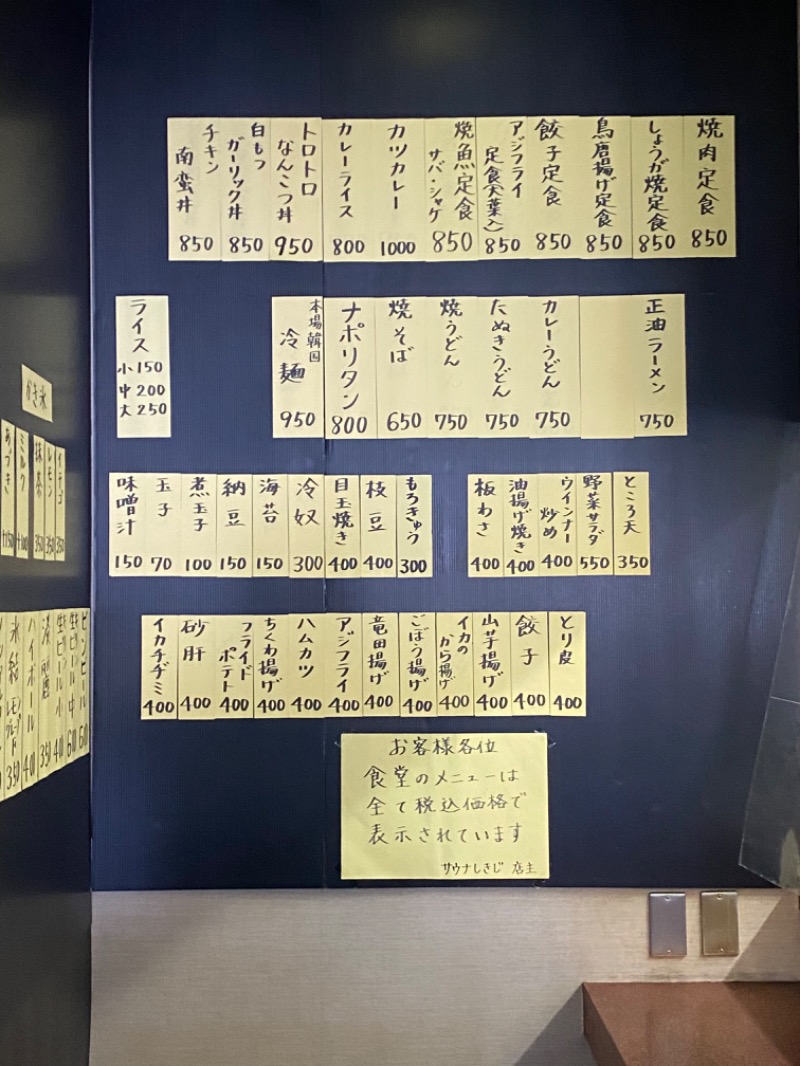 焼肉定食 850
しょうが焼定食 850
鳥唐揚げ定食 850
餃子定食 850
アジフライ
定食(大葉入) 850
焼魚定食
サバ・シャケ 850
カツカレー 1000
カレーライス 800
トロトロ
なんこつ丼 950
白もつ
ガーリック丼 850
チキン
南蛮丼 850
正油ラーメン 750
カレーうどん 750
たぬきうどん 750
焼うどん 750
焼そば 650
ナポリタン 800
本場韓国
冷麺 950
ライス
小 150
中 200
大 250
ところ天 350
野菜サラダ 550
ウインナー
炒め 400
油揚げ焼き 400
板わさ 400
もろきゅう 300
枝豆 400
目玉焼き 400
冷奴 300
海苔 150
納豆 150
煮玉子 100
玉子 70
味噌汁 150
とり皮 400
餃子 400
山芋揚げ 400
イカの
から揚げ 400
ごぼう揚げ 400
竜田揚げ 400
アジフライ 400
ハムカツ 400
ちくわ揚げ 400
フライド
ポテト 400
砂肝 400
イカチヂミ 400
お客様各位
食堂のメニューは
全て税込価格で
表示されています
サウナしきじ 店主
かき氷
イチゴ 350
レモン 350
抹茶 350
ミルク +100
あづき +150
ビンビール
生ビール 中
生ビール 小
ハイボール
氷結 レモン
グレープ 350